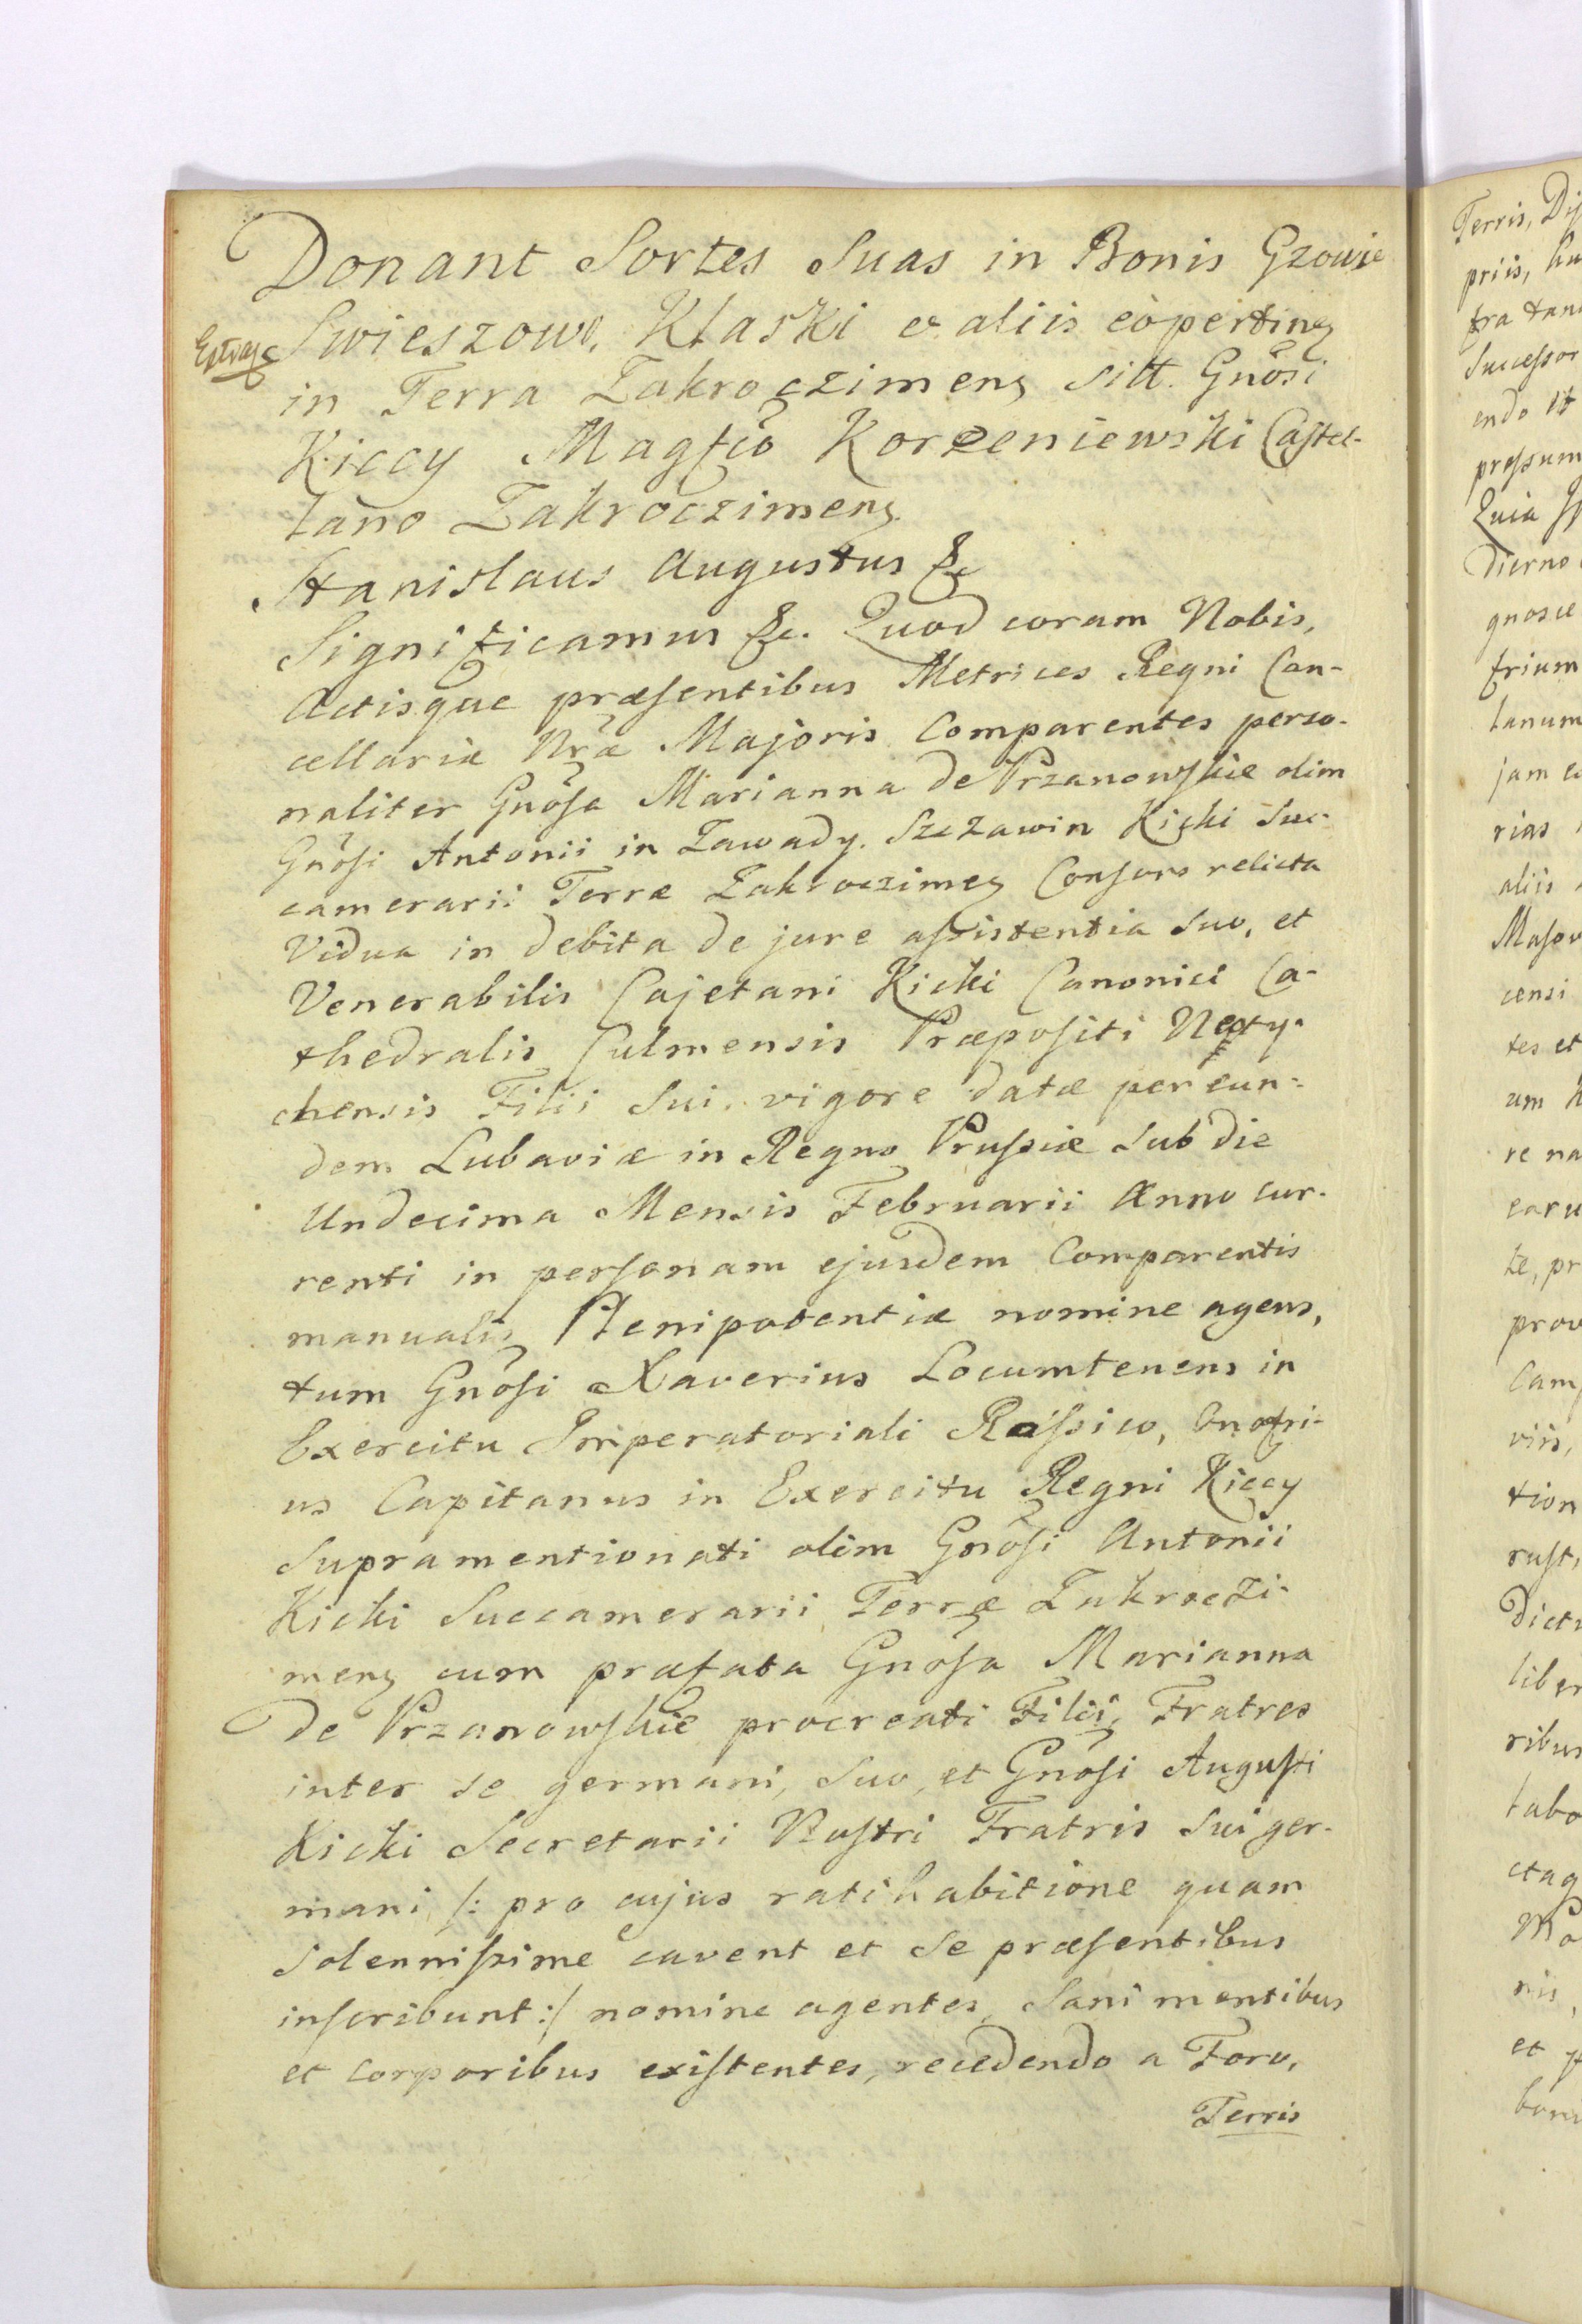 Donant Sortes Suas in Bonis Gzowie
Swieszowo, Kłaski & aliis eò pertineꝫ
in Terra Zakroczimenꝫ sitt. Gnõsi
Kiccy Magfcõ Korzeniewski Castel-
lano Zakroczimenꝫ.
Stanislaus Augustus &c
Significamus &c. Quod coram Nobis,
Actisque præsentibus Metrices Regni Can-
cellariæ Nr̃æ Majoris Comparentes perso-
naliter Gnõsa Marianna de Przanowskie olim
Gnõsi Antonii in Zawady. Szczawin Kicki Suc-
camerarii Terræ Zakroczimeꝫ Consors relicta
Vidua in debita de jure assistentia suo, et
Venerabilis Cajetani Kicki Canonici Ca-
thedralis Culmensis Præpositi
chensis Filii Sui, vigore datæ per eun-
dem Lubaviæ in Regno Prussiæ sub die
Undecima Mensis Februarii Anno cur-
renti in personam ejusdem Comparentis
manualis Plenipotentiæ nomine agens,
tum Gnõsi Xaverius Locumtenens in
Exercitu Imperatoriali Rossico, Onofri-
us Capitanus in Exercitu Regni Kiccy
Supramentionati olim Gnõsi Antonii
Kicki Succamerarii Terræ Zakroczi-
menꝫ cum præfata Gnõsa Marianna
de Przanowskie procreati Filii, Fratres
inter se germani, suo, et Gnõsi Augusti
Kicki Secretarii Nostri Fratris Sui ger-
mani /: pro cujus ratihabitione quam
solennissime cavent et se præsentibus
inscribunt :/ nomine agentes, Sani mentibus
et corporibus existentes, recedendo a Foro,
Terris